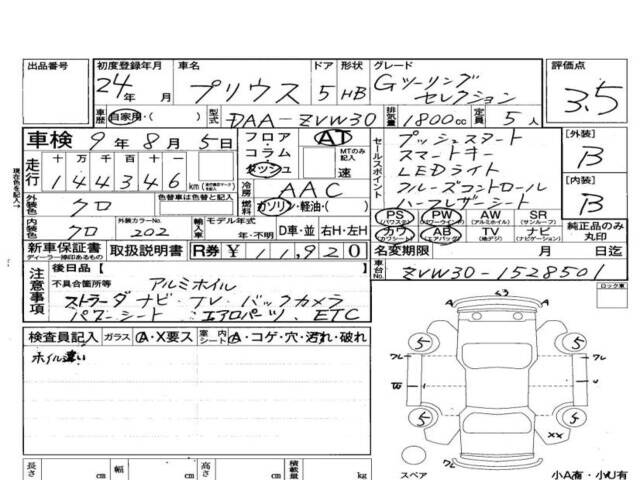 出品番号
初度登録年月
24年 月
車名
プリウス
ドア
5
形状
HB
グレード
Gツーリング
セレクション
評価点
3.5
車歴
自家用・( )
型式
DAA-ZVW30
排気量
1800cc
定員
5人
車検 9年 8月 5日
フロア・コラム・ダッシュ
AT
MTのみ記入
速
走行
十万千百十一
144346km
冷房
AAC
燃料
ガソリン・軽油・( )
外装色
クロ
色替車は色替と記入
内装色
クロ
外装カラーNo.
202
輸入車
モデル年式
年・不明
D車・並
右H・左H
セールスポイント
プッシュスタート
スマートキー
LEDライト
クルーズコントロール
ハーフレザーシート
PS (パワステ)
PW (パワーウインドウ)
AW (アルミホイル)
SR (サンルーフ)
カワ (カワシート)
AB (エアバッグ)
TV (地デジ)
ナビ (ナビゲーション)
純正品のみ丸印
[外装]
B
[内装]
B
新車保証書
ディーラー捺印あるもの
取扱説明書
R券 ¥11,920
名変期限 月 日迄
車台No.
ZVW30-1528501
注意事項
後日品【
不具合箇所等
アルミホイル
ストラーダナビ・TV・バックカメラ
パワーシート、エアロパーツ、ETC
ロック車
検査員記入
ガラス
A・X要ス
室内シート
A・コゲ・穴・汚れ・破れ
ホイル違い
A
A
5
5
ワレ
ワレ
W
U
5
5
XX
スペア
小A有・小U有
長さ cm
幅 cm
高さ cm
積載量 kg
現在色を記入→